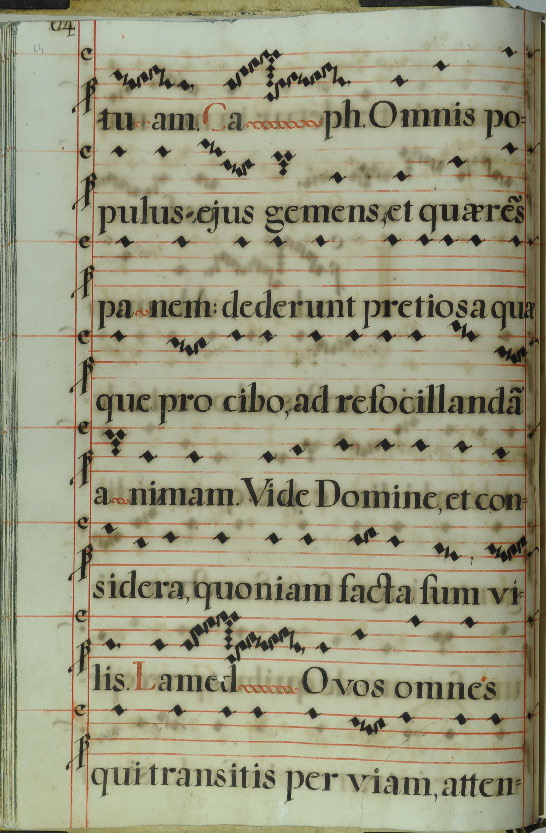 64
tu am. Caph. Omnis po-
pulus ejus gemens, et quærẽs
panem: dederunt pretiosa quæ
que pro cibo, ad reſocillandã
animam. Vide Domine, et con-
sidera, quoniam facta ſum vi-
lis. Lamed O vos omnes
qui transitis per viam, atten-